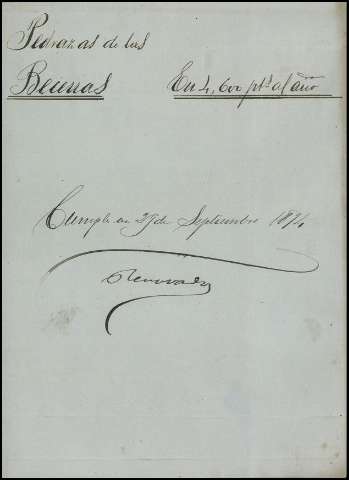 Pedrazas de las
Becerras En 4,600 pts al año
Cumple en 29 de Septiembre 1874
Renovada